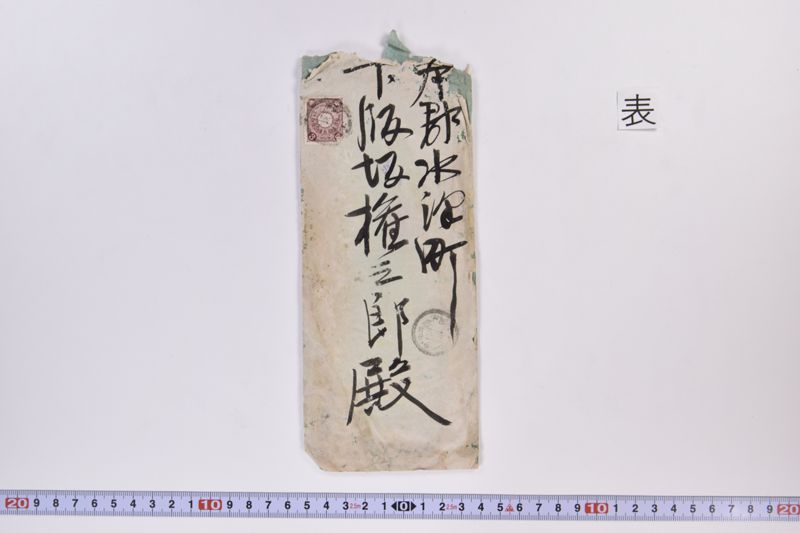 表
本郡水津町
下飯坂権三郎殿
20 9 8 7 6 5 4 3 2 1 10 9 8 7 6 5 4 3 2.5m 2 1 0 1 2 2.5m 3 4 5 6 7 8 9 10 1 2 3 4 5 6 7 8 9 20